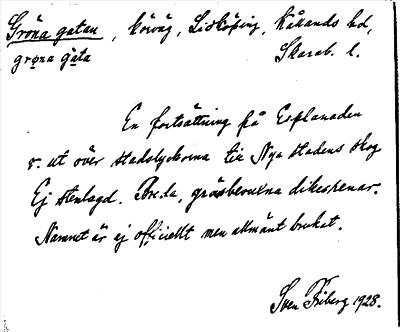 Gröna gatan, körväg, Lidköping, Kållands hd,
grǫna gàta Skarab. l.
En fortsättning på Esplanaden
v. ut över stadslyckorna till Nya stadens skog
Ej stenlagd. Breda, gräsbevuxna dikesrenar.
Namnet är ej officiellt men allmänt brukat.
Sven Friberg 1928.